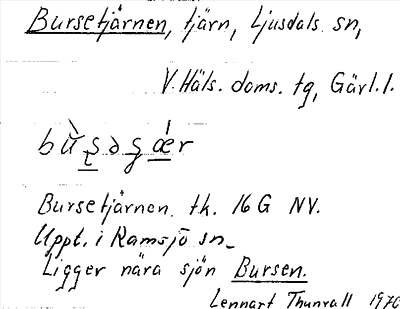 Bursetjärnen, tjärn, Ljusdals sn,
V. Häls. doms. tg, Gävl.l.
Bursetjärnen. tk. 16 G NV.
Uppt. i Ramsjö sn.
Ligger nära sjön Bursen.
Lennart Thunvall 1970